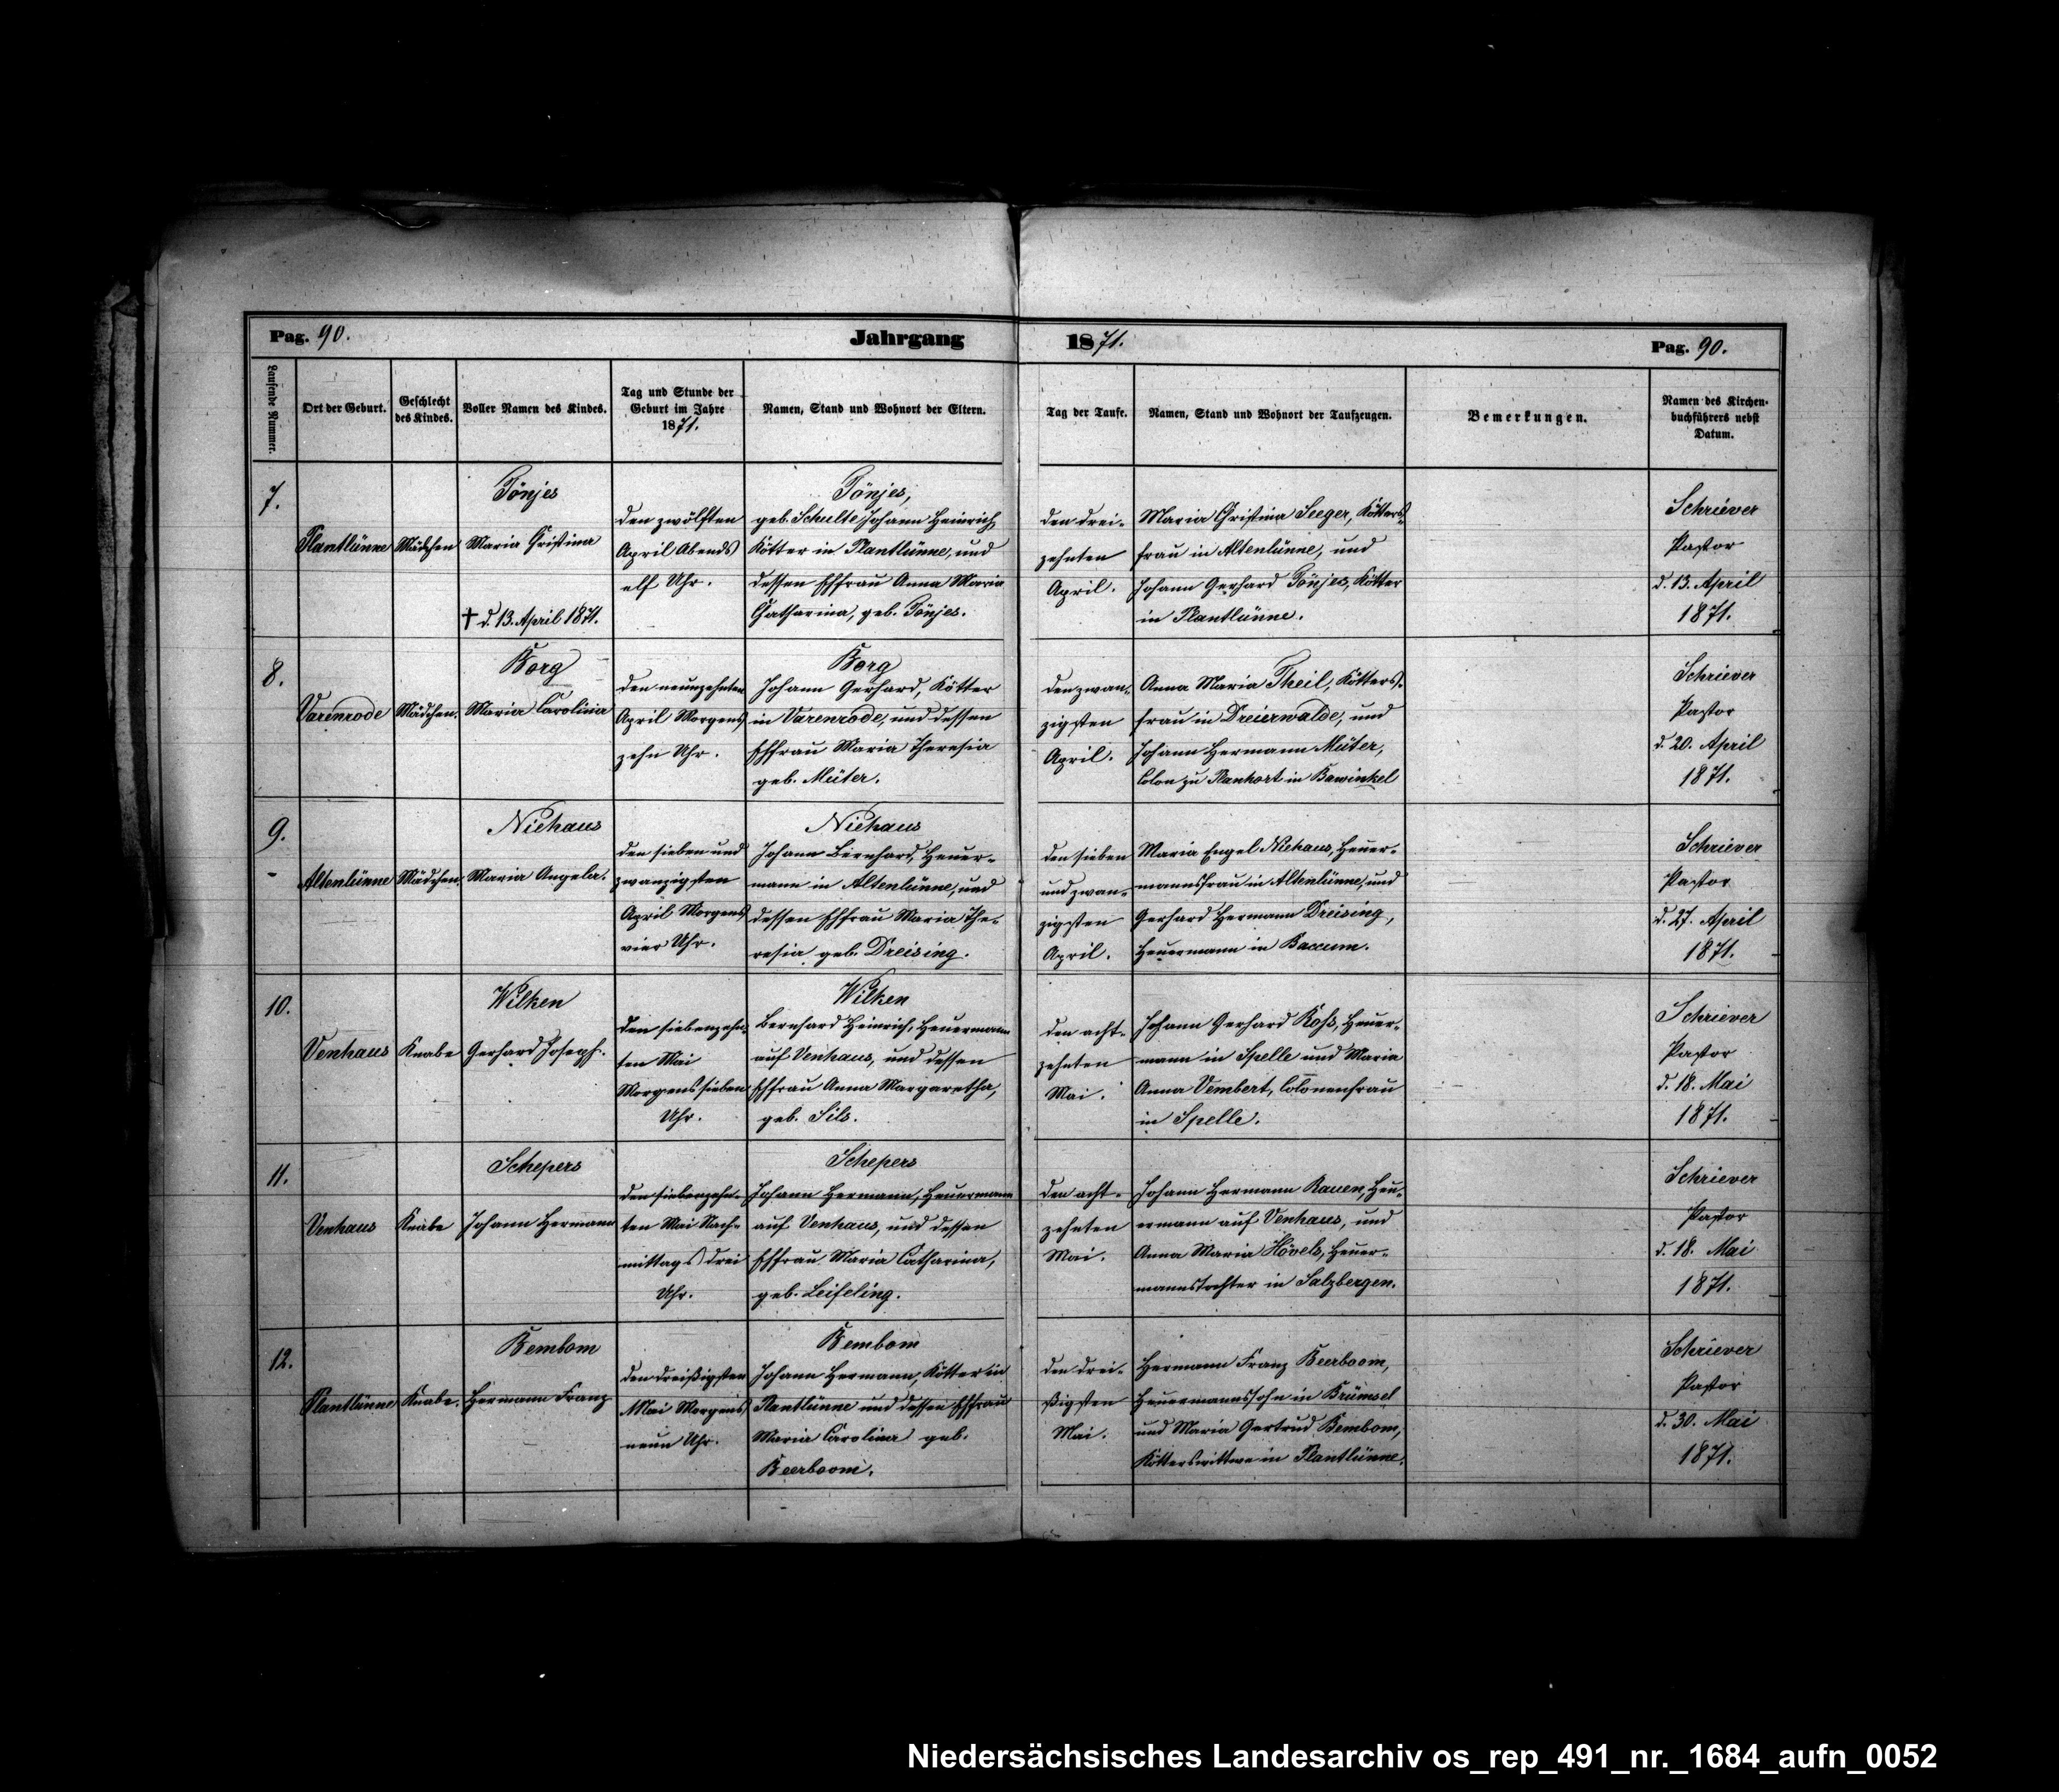 Pag. 90.
Jahrgang
1871.
Pag. 90.
Laufende Nummer.
Ort der Geburt.
Geschlecht
des Kindes.
Voller Namen des Kindes.
Tag und Stunde der
Geburt im Jahre
1871.
Namen, Stand und Wohnort der Eltern.
Tag der Taufe.
Namen, Stand und Wohnort der Taufzeugen.
Bemerkungen.
Namen des Kirchen-
buchführers nebst
Datum.
7.
Plantlünne
Mädchen
Tönjes
Maria Christina
† d. 13. April 1871.
den zwölften
April Abends
elf Uhr.
Tönjes,
geb. Schulte Johann Heinrich,
Kötter in Plantlünne, und
dessen Ehfrau Anna Maria
Catharina, geb. Tönjes.
den drei-
zehnten
April.
Maria Christina Seeger, Kötters-
frau in Altenlünne, und
Johann Gerhard Tönjes, Kötter
in Plantlünne.
Schriever
Pastor
d. 13. April
1871.
8.
Varenrode
Mädchen.
Borg
Maria Carolina
den neunzehnten
April Morgens
zehn Uhr.
Borg
Johann Gerhard, Kötter
in Varenrode, und dessen
Ehfrau Maria Theresia
geb. Müter.
den zwan-
zigsten
April.
Anna Maria Theil, Kötters-
frau in Dreierwalde, und
Johann Hermann Müter,
Colon zu Planhort in Bawinkel
Schriever
Pastor
d. 20. April
1871.
9.
Altenlünne
Mädchen.
Niehaus
Maria Angela.
den sieben und
zwanzigsten
April Morgens
vier Uhr.
Niehaus
Johann Bernhard, Heuer-
mann in Altenlünne, und
dessen Ehfrau Maria The-
resia geb. Dreising.
den sieben
und zwan-
zigsten
April.
Maria Engel Niehaus, Heuer-
mannsfrau in Altenlünne, und
Gerhard Hermann Dreising,
Heuermann in Baccum.
Schriever
Pastor
d. 27. April
1871.
10.
Venhaus
Knabe
Wilken
Gerhard Joseph.
den siebenzehn-
ten Mai
Morgens sieben
Uhr.
Wilken
Bernhard Heinrich, Heuermann
auf Venhaus, und dessen
Ehfrau Anna Margaretha,
geb. Sils.
den acht-
zehnten
Mai.
Johann Gerhard Rohs, Heuer-
mann in Spelle und Maria
Anna Vembert, Colonenfrau
in Spelle.
Schriever
Pastor
d. 18. Mai
1871.
11.
Venhaus
Knabe
Schepers
Johann Hermann
den siebenzehn-
ten Mai Nach-
mittags drei
Uhr.
Schepers
Johann Hermann, Heuermann
auf Venhaus, und dessen
Ehfrau Maria Catharina,
geb. Leifeling.
den acht-
zehnten
Mai.
Johann Hermann Rauen, Heu-
ermann auf Venhaus, und
Anna Maria Hövels, Heuer-
mannstochter in Salzbergen.
Schriever
Pastor
d. 18. Mai
1871.
12.
Plantlünne
Knabe.
Bembom
Hermann Franz
den dreißigsten
Mai Morgens
neun Uhr.
Bembom
Johann Hermann, Kötter in
Plantlünne und dessen Ehfrau
Maria Carolina geb.
Beerboom.
den drei-
ßigsten
Mai.
Hermann Franz Beerboom,
Heuermannssohn in Brümsel
und Maria Gertrud Bembom,
Kötterswittwe in Plantlünne.
Schriever
Pastor
d. 30. Mai
1871.
Niedersächsisches Landesarchiv os_rep_491_nr._1684_aufn_0052